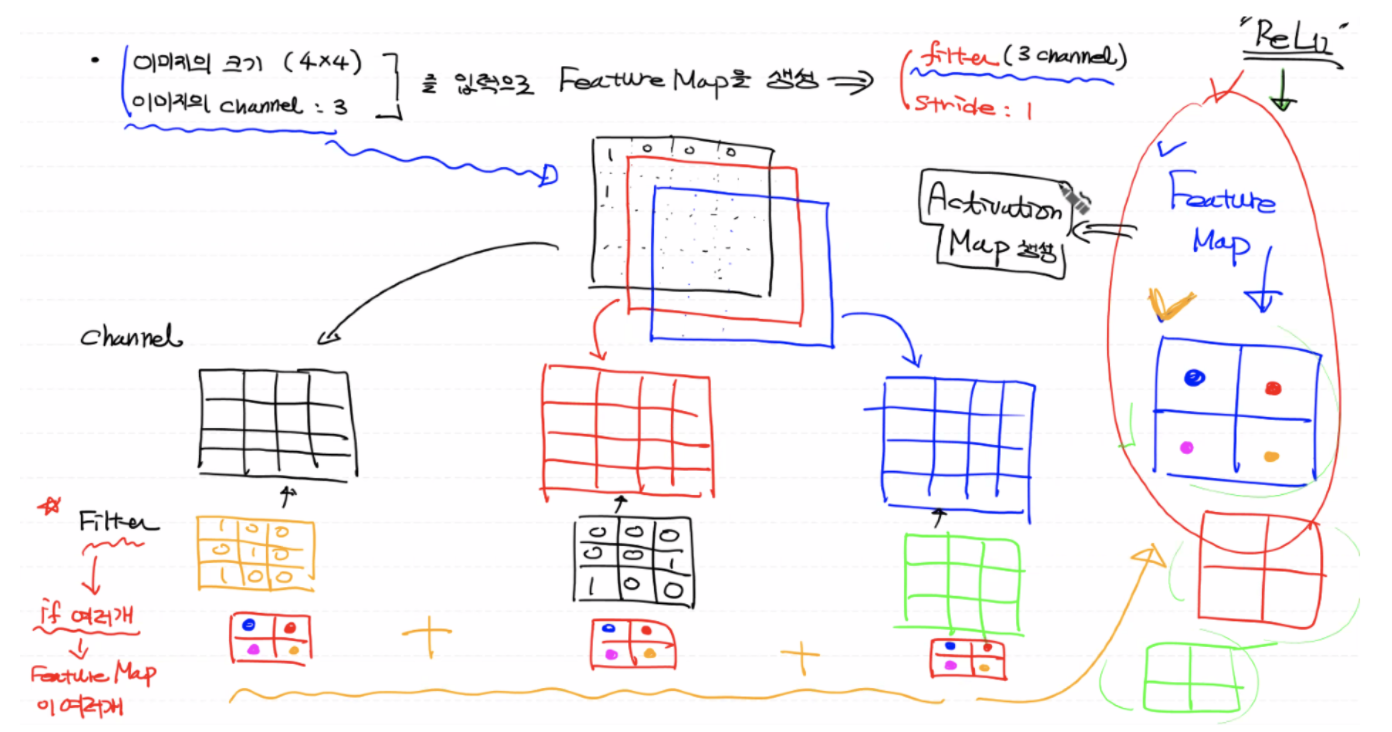 • 이미지의 크기 (4×4)
이미지의 channel : 3
를 입력으로 Feature Map을 생성 ⇒
filter (3 channel)
stride : 1
"ReLU"
1 0 0 0
1
Activation
Map 생성
Feature
Map
channel
Filter
1 0 0
0 1 0
1 0 0
0 0 0
0 0 1
1 0 0
if 여러개
Feature Map
이 여러개
+ +